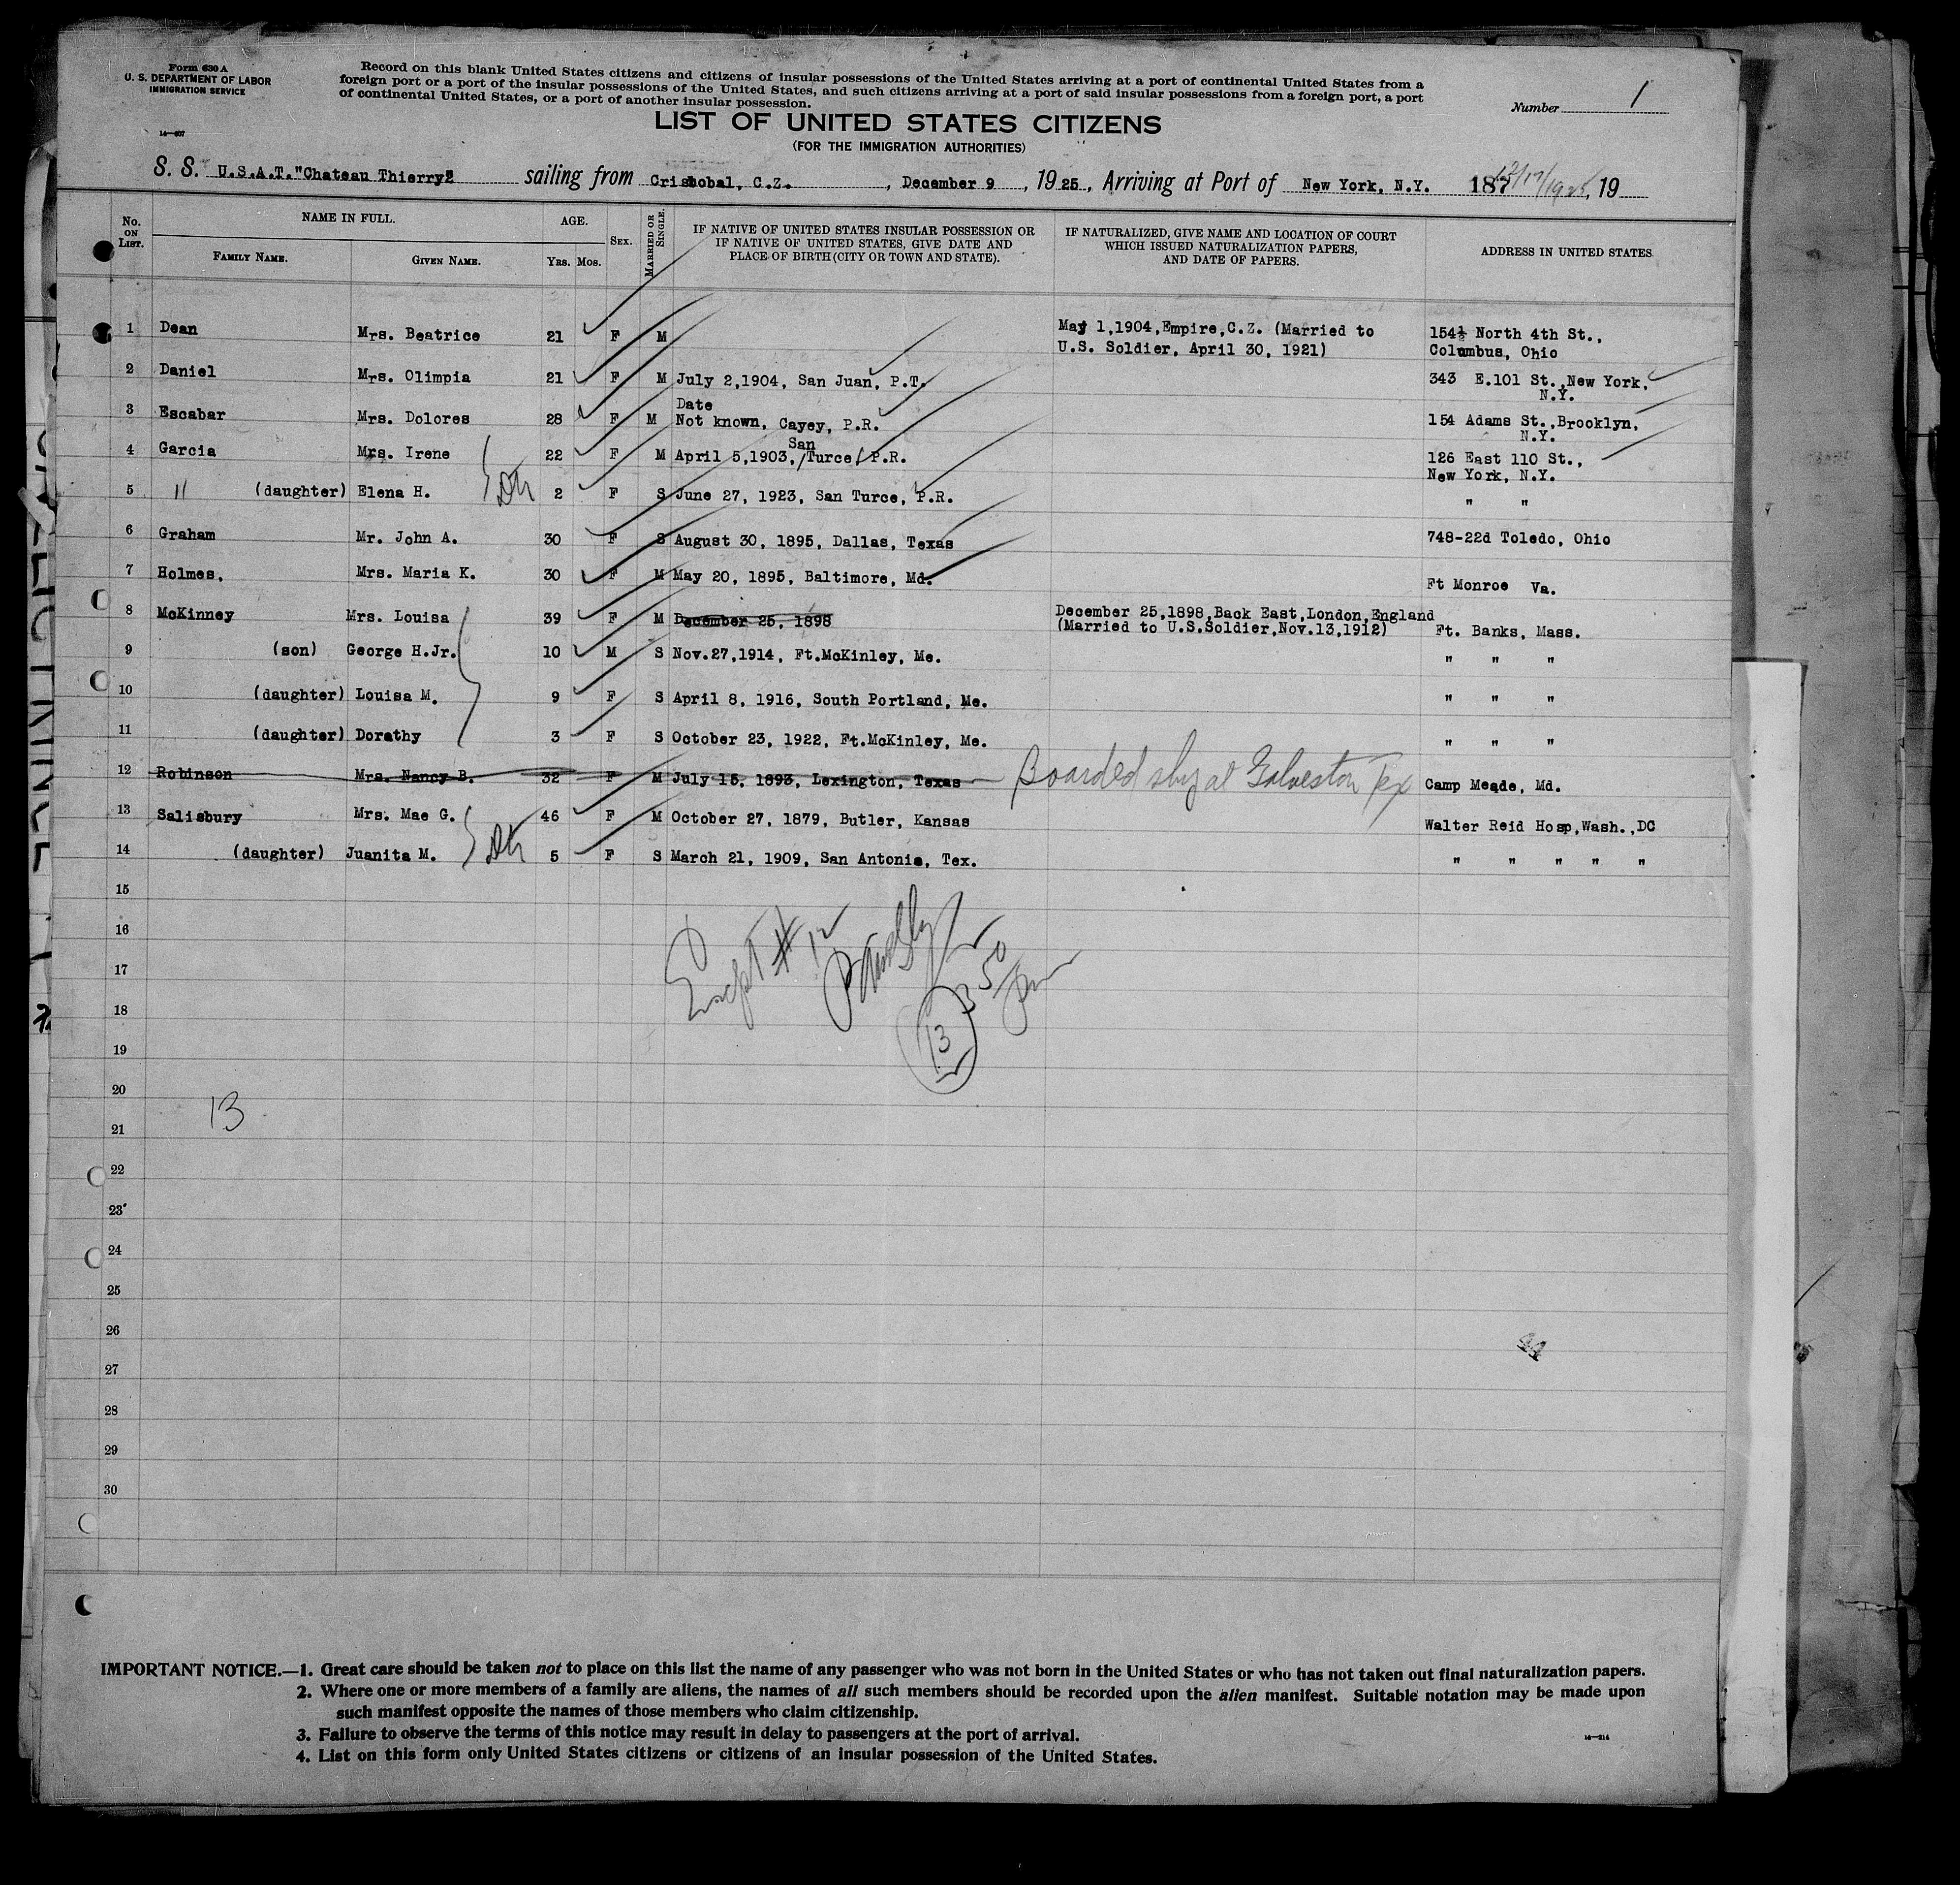 Form 630 A
U. S. DEPARTMENT OF LABOR
IMMIGRATION SERVICE
14—607
Record on this blank United States citizens and citizens of insular possessions of the United States arriving at a port of continental United States from a
foreign port or a port of the insular possessions of the United States, and such citizens arriving at a port of said insular possessions from a foreign port, a port
of continental United States, or a port of another insular possession.
Number 1
LIST OF UNITED STATES CITIZENS
(FOR THE IMMIGRATION AUTHORITIES)
S. S. U.S.A.T."Chateau Thierry2 sailing from Cristobal, C.Z. , December 9 , 1925, Arriving at Port of New York, N.Y. 187 12/17/1925, 19
No. ON LIST. NAME IN FULL. AGE. SEX. MARRIED OR SINGLE. IF NATIVE OF UNITED STATES INSULAR POSSESSION OR IF NATIVE OF UNITED STATES, GIVE DATE AND PLACE OF BIRTH (CITY OR TOWN AND STATE). IF NATURALIZED, GIVE NAME AND LOCATION OF COURT WHICH ISSUED NATURALIZATION PAPERS, AND DATE OF PAPERS. ADDRESS IN UNITED STATES
FAMILY NAME. GIVEN NAME. YRS. MOS.
1 Dean Mrs. Beatrice 21 F M May 1,1904,Empire,C.Z. (Married to 154½ North 4th St.,
U.S. Soldier, April 30, 1921) Columbus, Ohio
2 Daniel Mrs. Olimpia 21 F M July 2,1904, San Juan, P.T. 343 E.101 St.,New York,
N.Y.
Date
3 Escabar Mrs. Dolores 28 F M Not known, Cayey, P.R. 154 Adams St.,Brooklyn,
N.Y.
San
4 Garcia Mrs. Irene 22 F M April 5,1903,/Turce, P.R. 126 East 110 St.,
New York, N.Y.
5 " (daughter) Elena H. 2 F S June 27, 1923, San Turce, P.R. " "
6 Graham Mr. John A. 30 F S August 30, 1895, Dallas, Texas 748-22d Toledo, Ohio
7 Holmes, Mrs. Maria K. 30 F M May 20, 1895, Baltimore, Md. Ft Monroe Va.
8 McKinney Mrs. Louisa 39 F M December 25, 1898 December 25,1898,Back East,London,England
(Married to U.S.Soldier,Nov.13,1912) Ft. Banks, Mass.
9 (son) George H.Jr. 10 M S Nov.27,1914, Ft.McKinley, Me. " " "
10 (daughter) Louisa M. 9 F S April 8, 1916, South Portland, Me. " " "
11 (daughter) Dorathy 3 F S October 23, 1922, Ft.McKinley, Me. " " "
12 Robinson Mrs. Nancy B. 32 F M July 15, 1893, Lexington, Texas Boarded ship at Galveston Tex Camp Meade, Md.
13 Salisbury Mrs. Mae G. 46 F M October 27, 1879, Butler, Kansas Walter Reid Hosp,Wash.,DC
14 (daughter) Juanita M. 5 F S March 21, 1909, San Antonio, Tex. " " " " "
15
16
Except # 12
17
18
350
19
13
20
13
21
22
23
24
25
26
27
28
29
30
IMPORTANT NOTICE.—1. Great care should be taken not to place on this list the name of any passenger who was not born in the United States or who has not taken out final naturalization papers.
2. Where one or more members of a family are aliens, the names of all such members should be recorded upon the alien manifest. Suitable notation may be made upon
such manifest opposite the names of those members who claim citizenship.
3. Failure to observe the terms of this notice may result in delay to passengers at the port of arrival.
4. List on this form only United States citizens or citizens of an insular possession of the United States.
14—214